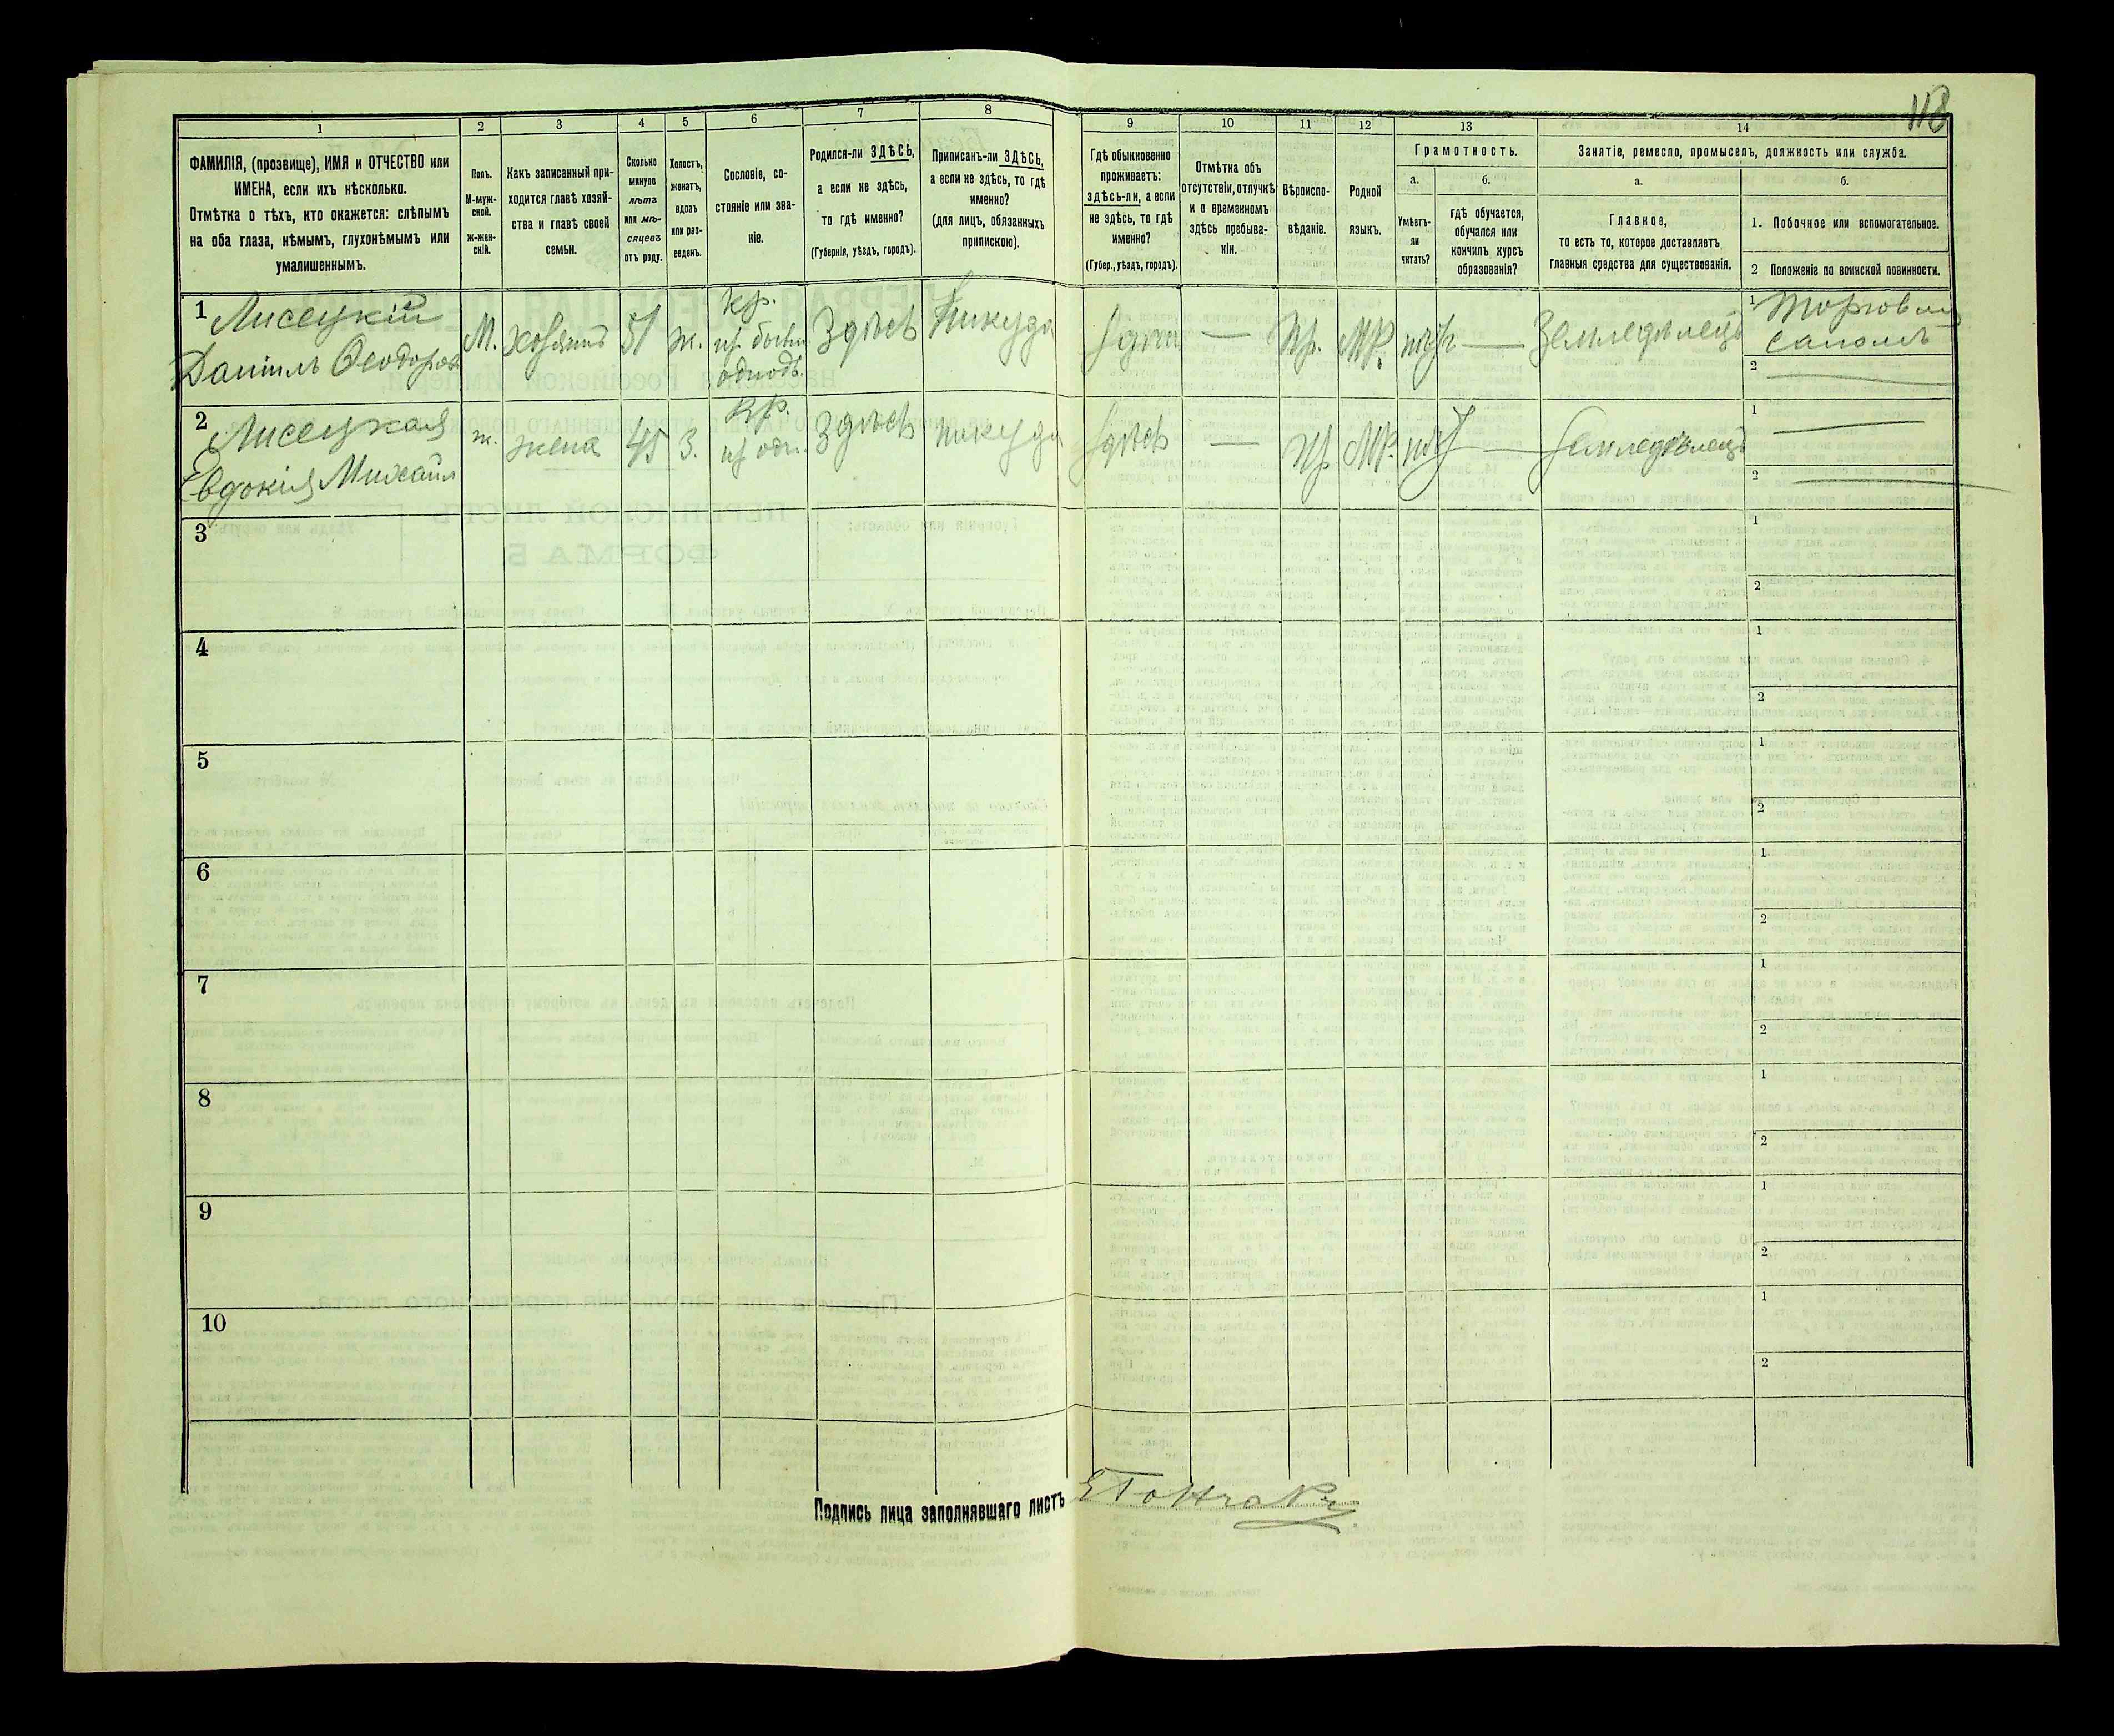 118
1 2 3 4 5 6 7 8 9 10 11 12 13 14
ФАМИЛІЯ, (прозвище), ИМЯ и ОТЧЕСТВО или
ИМЕНА, если ихъ нѣсколько.
Отмѣтка о тѣхъ, кто окажется: слѣпымъ
на оба глаза, нѣмымъ, глухонѣмымъ или
умалишеннымъ.
Полъ.
М-муж-
ской.
ж-жен-
скій.
Какъ записанный при-
ходится главѣ хозяй-
ства и главѣ своей
семьи.
Сколько
минуло
лѣтъ
или мѣ-
сяцевъ
отъ роду.
Холостъ,
женатъ,
вдовъ
или раз-
веденъ.
Сословіе, со-
стояніе или зва-
ніе.
Родился-ли ЗДѢСЬ,
а если не здѣсь,
то гдѣ именно?
(Губернія, уѣздъ, городъ).
Приписанъ-ли ЗДѢСЬ,
а если не здѣсь, то гдѣ
именно?
(для лицъ, обязанныхъ
припискою).
Гдѣ обыкновенно
проживаетъ:
здѣсь-ли, а если
не здѣсь, то гдѣ
именно?
(Губер., уѣздъ, городъ).
Отмѣтка объ
отсутствіи, отлучкѣ
и о временномъ
здѣсь пребыва-
ніи.
Вѣроиспо-
вѣданіе.
Родной
языкъ.
Грамотность.
а.
Умѣетъ-
ли
читать?
б.
гдѣ обучается,
обучался или
кончилъ курсъ
образованія?
Занятіе, ремесло, промыселъ, должность или служба.
а.
Главное,
то есть то, которое доставляетъ
главныя средства для существованія.
б.
1. Побочное или вспомогательное.
2 Положеніе по воинской повинности.
1 Лисецкій
Даніилъ Ѳеодоров
М. хозяинъ 51 ж.
кр.
из бывш
однодв.
Здѣсь Никуда здѣсь — Пр. МР. нѣтъ — Земледѣлецъ
1 Торговля
саломъ
2 —
2 Лисецкая
Евдокія Михайл
ж. жена 45 З.
кр.
из одн.
Здѣсь никуда здѣсь — Пр МР. нѣт — Земледѣлецъ
1 —
2 —
3 1
2
4 1
2
5 1
2
6 1
2
7 1
2
8 1
2
9 1
2
10 1
2
Подпись лица заполнявшаго листъ